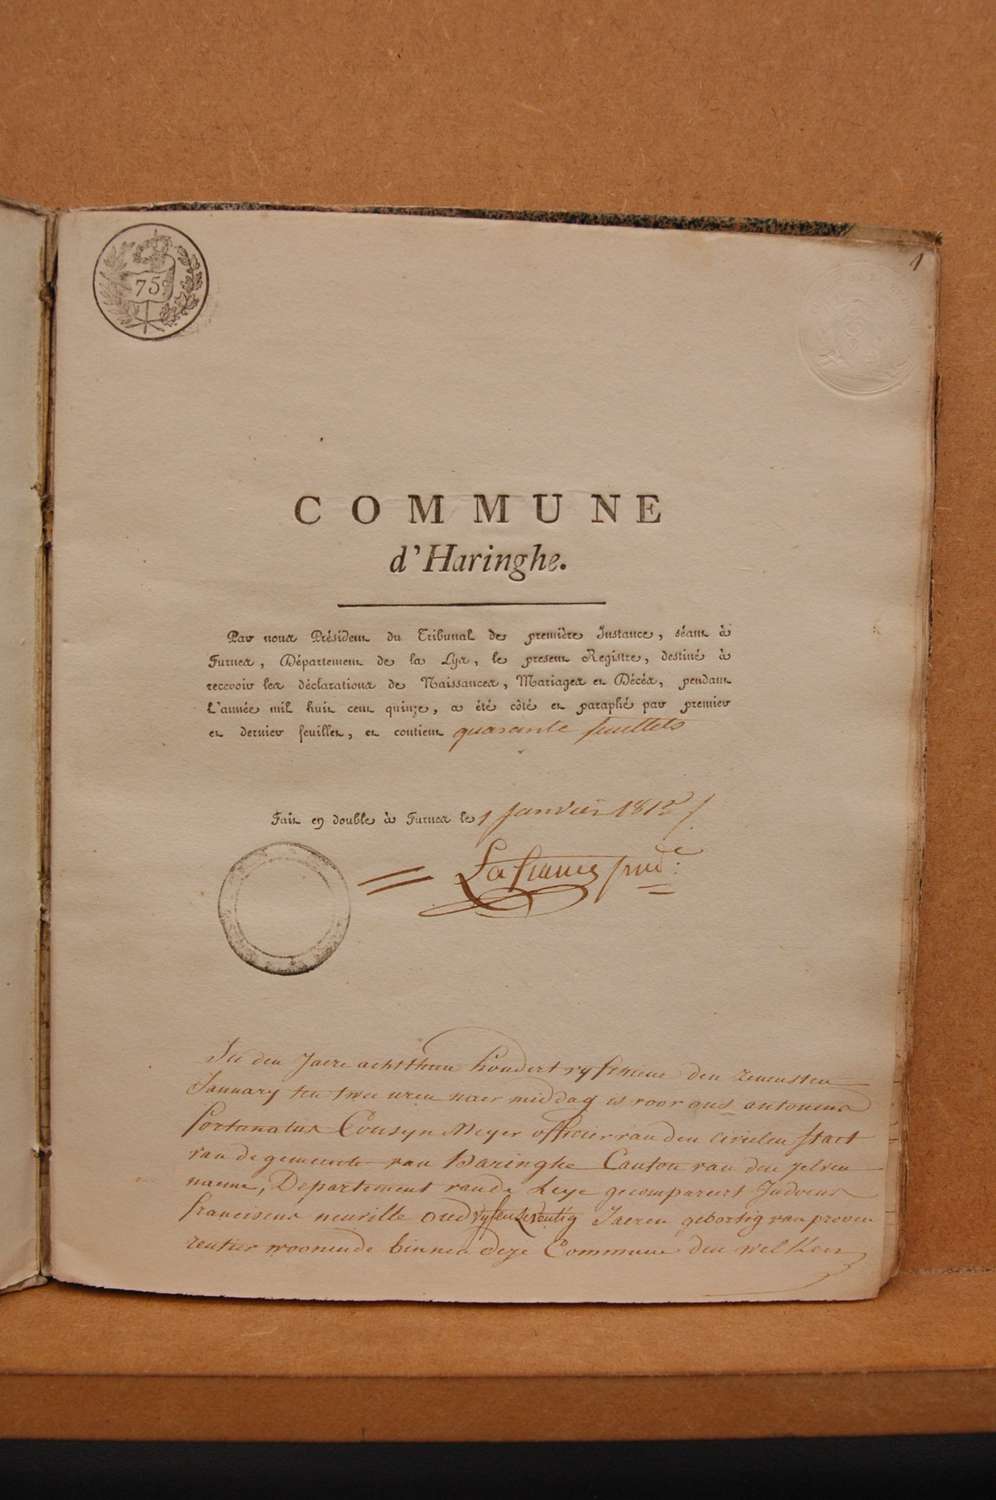 1
75
COMMUNE
d'Haringhe.
Par nous Président du Tribunal de première Instance, séant à
Furnes, Département de la Lys, le present Registre, destiné à
recevoir les déclarations de Naissances, Mariages et Décés, pendant
l'année mil huit cent quinze, a été côté et paraphé par premier
et dernier feuillet, et contient quarante feuillets
Fait en double à Furnes le 1 Janvier 1815
In den Jaere achtthien hondert vyfthiene den zevensten
January ten twee uren naer middag is voor ons antonius
fortunatus Cousyn Meyer officier van den civielen staet
van de gemeente van Haringhe Canton van den zelven
naeme, Departement van de Leye gecompareert Judocus
franciscus neuville oud vyfenseventig Jaeren gebortig van proven
rentier woonende binnen deze Commune den welken